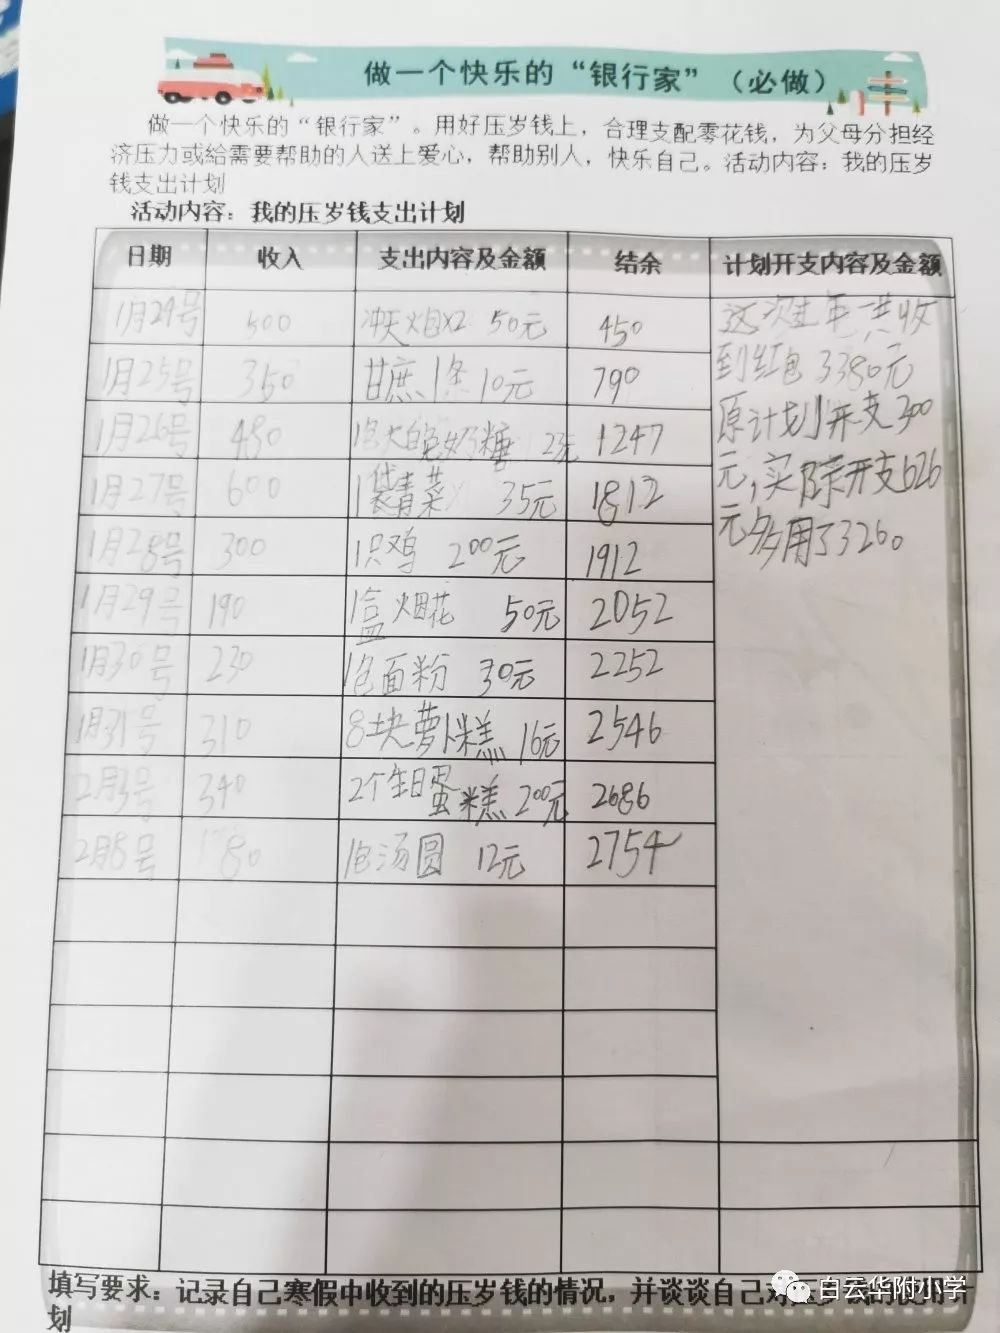 做一个快乐的“银行家”（必做）
做一个快乐的“银行家”。用好压岁钱上，合理支配零花钱，为父母分担经
济压力或给需要帮助的人送上爱心，帮助别人，快乐自己。活动内容：我的压岁
钱支出计划
活动内容：我的压岁钱支出计划
日期 收入 支出内容及金额 结余 计划开支内容及金额
1月24号 500 冲天火炮x2 50元 450
1月25号 350 甘蔗1条 10元 790
1月26号 480 1包大白兔奶糖 23元 1247
1月27号 600 1袋青菜 35元 1812
1月28号 300 1只鸡 200元 1912
1月29号 190 1盒烟花 50元 2052
1月30号 230 1包面粉 30元 2252
1月31号 310 8块萝卜糕 16元 2546
2月3号 340 2个生日蛋糕 200元 2686
2月8号 80 1包汤圆 12元 2754
这次过年一共收
到红包3380元
原计划开支300
元,实际开支626
元多用了326。
填写要求：记录自己寒假中收到的压岁钱的情况，并谈谈自己对
划
白云华附小学